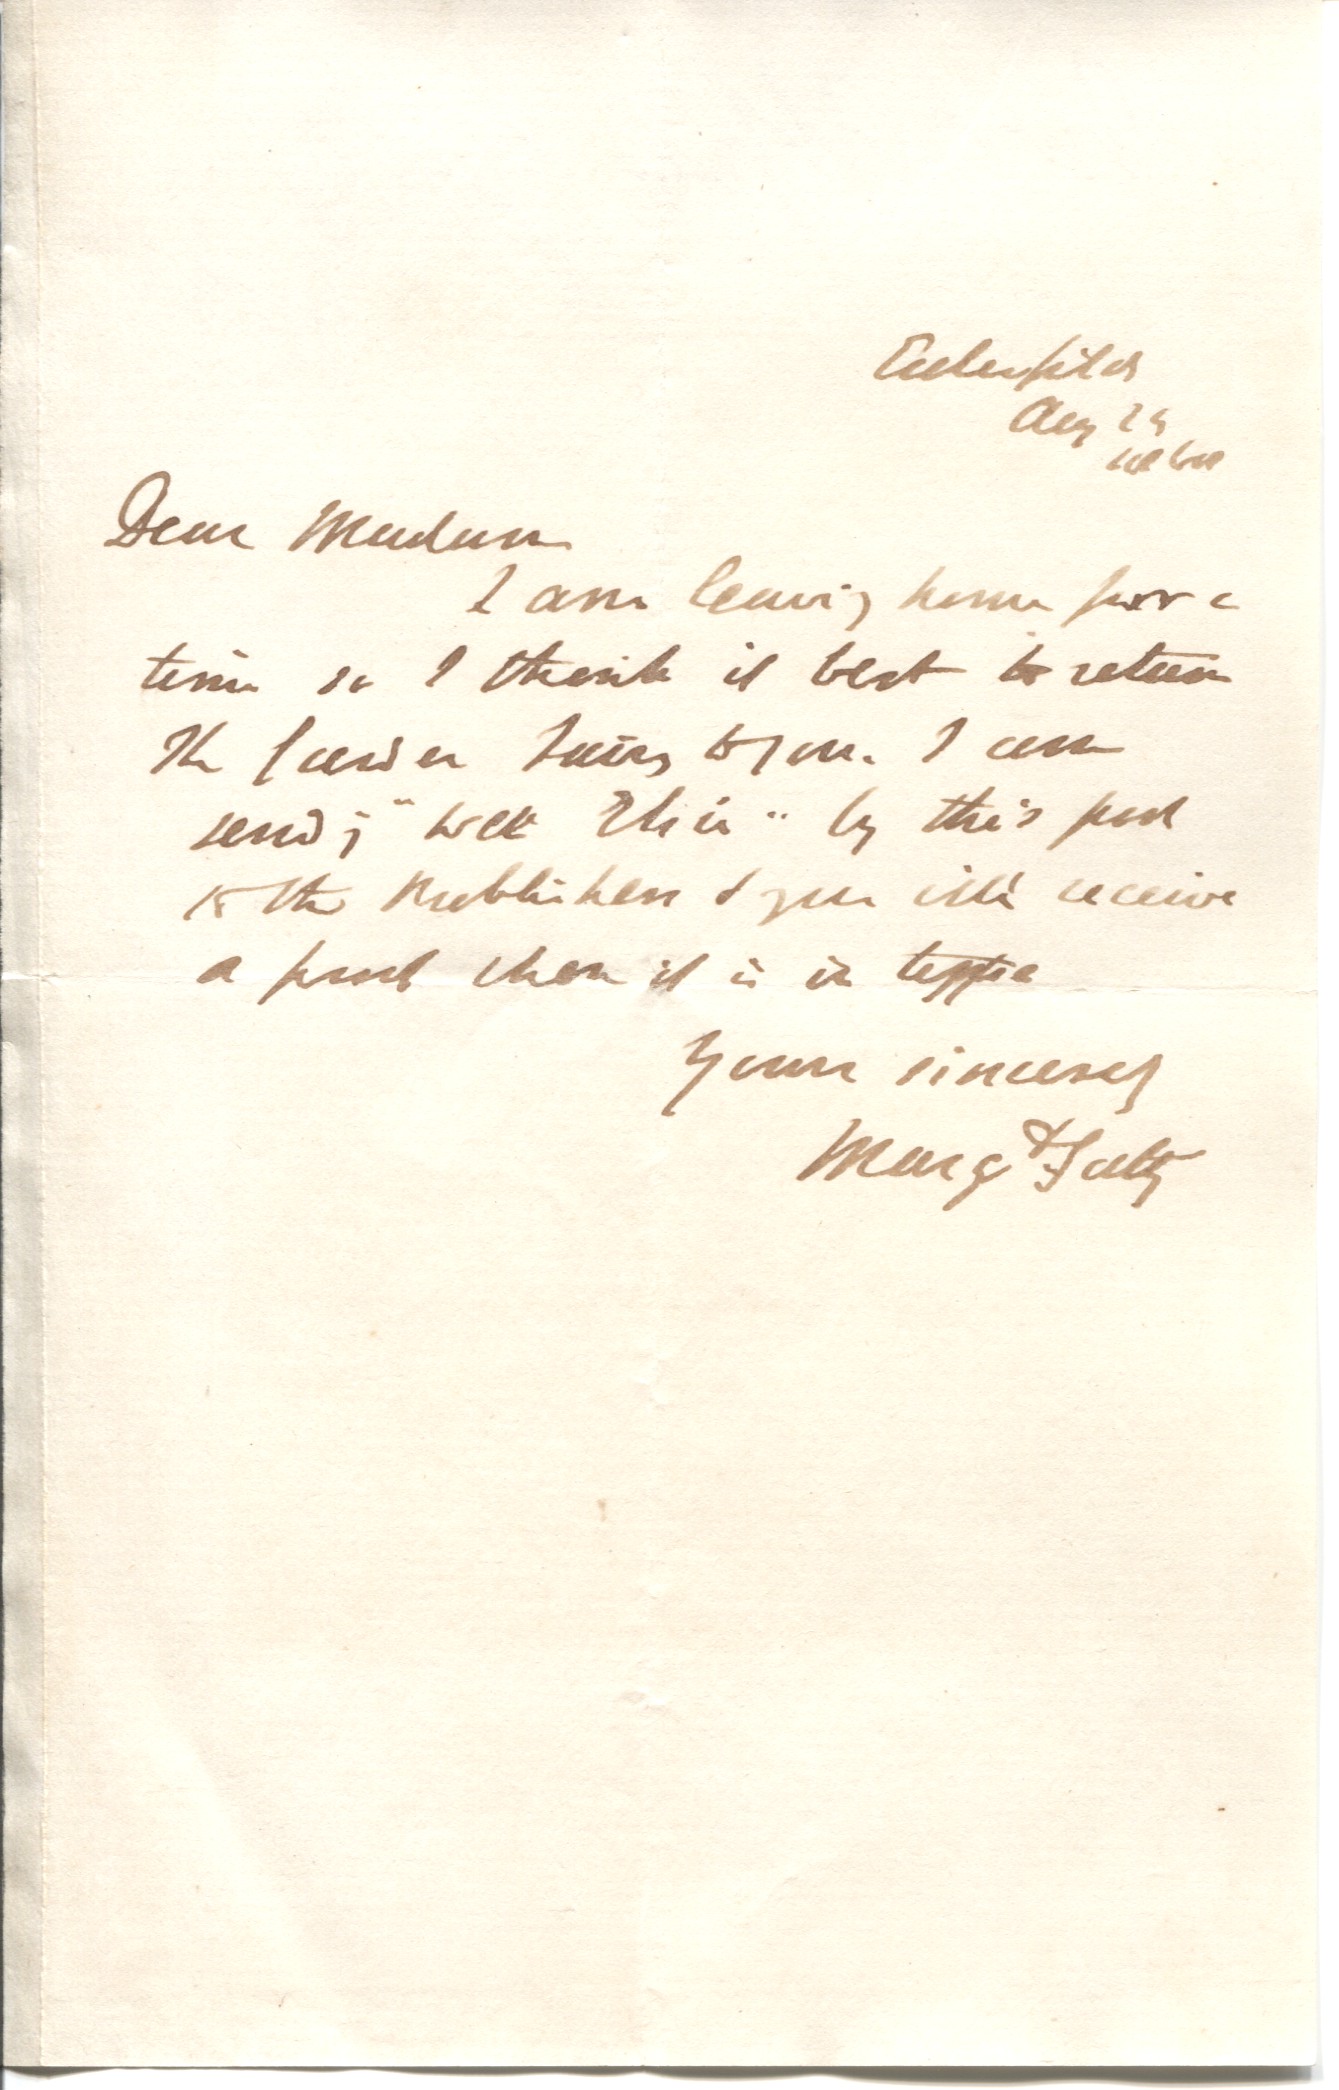 Ecclesfield
Aug 29
Dear Madam
I am leaving home for a
time so I think it best to return
the to you. I am
sending "Wee" by this post
to the Publishers & you will receive
a proof when it is in type
Yours sincerely
Marg^t Gatty